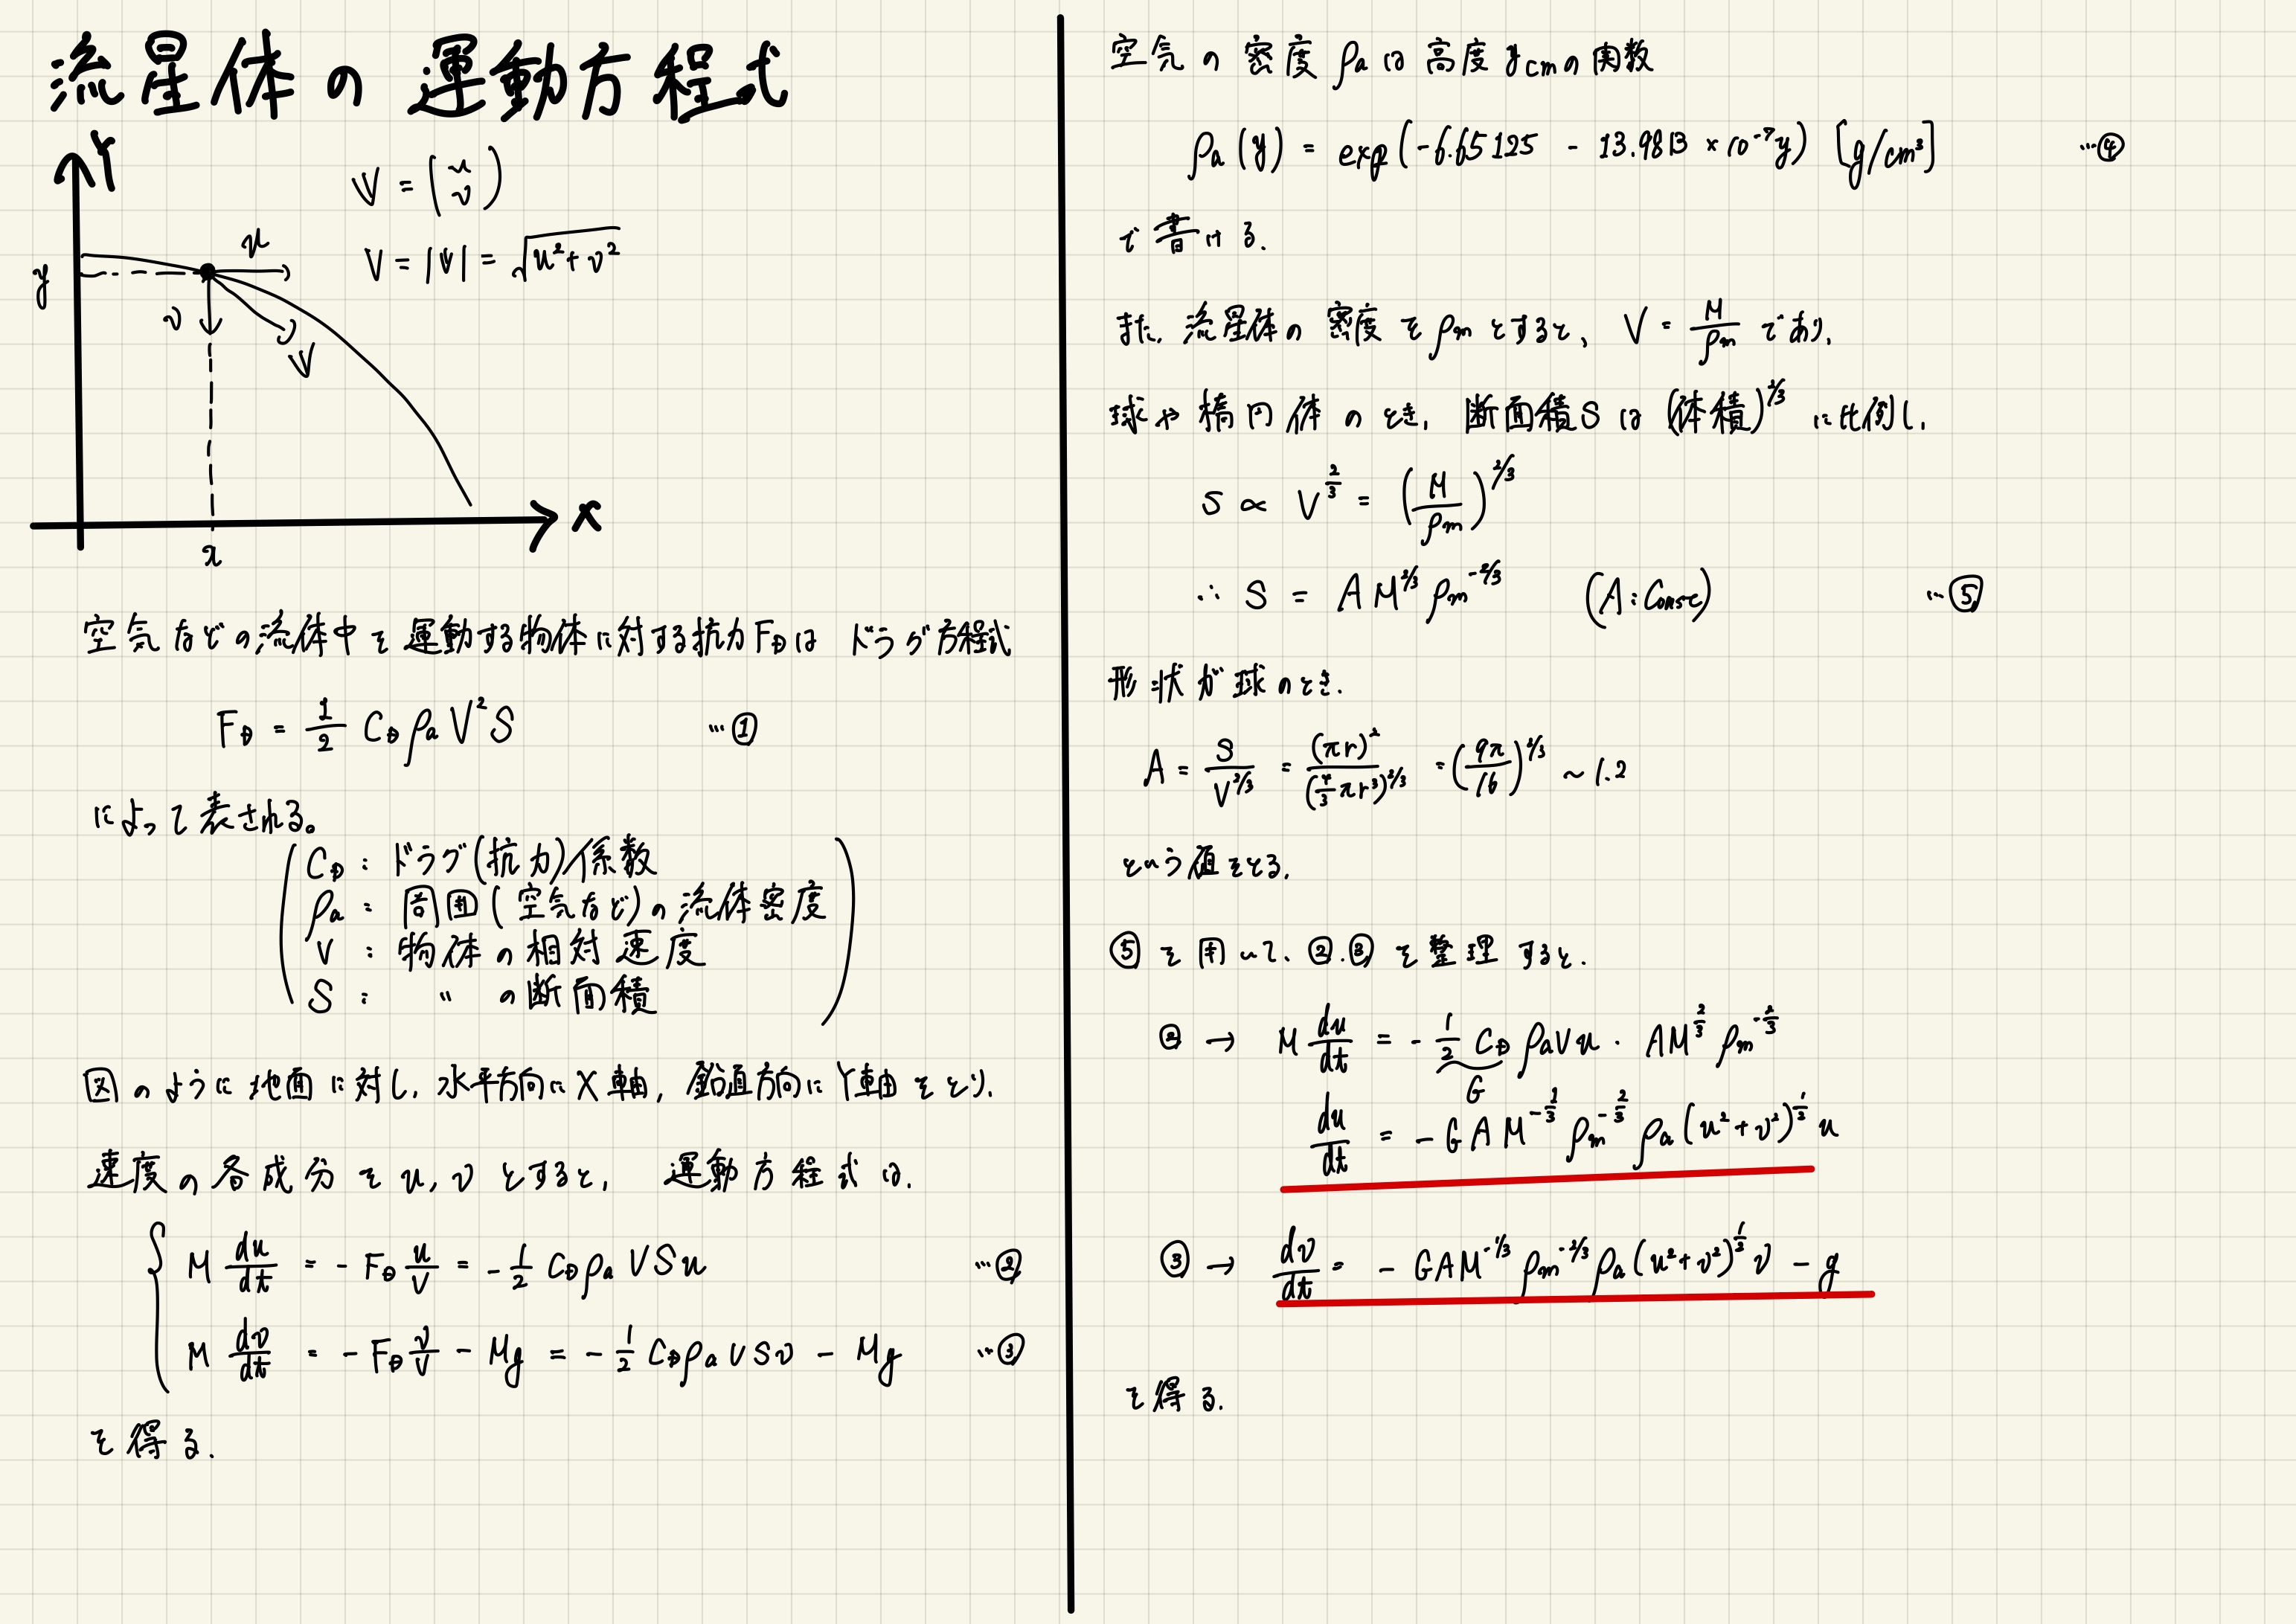 流星体の運動方程式
Y
𝕍 = (u v)
V = |𝕍| = √(u²+v²)
u
y
v
𝕍
X
x
空気などの流体中を運動する物体に対する抗力F_Dは ドラグ方程式
F_D = 1/2 C_D ρa V² S …①
によって表される。
C_D : ドラグ(抗力)係数
ρa : 周囲(空気など)の流体密度
V : 物体の相対速度
S : 〃 の断面積
図のように地面に対し, 水平方向にX軸, 鉛直方向にY軸をとり,
速度の各成分を u, v とすると, 運動方程式は,
M du/dt = - F_D u/V = - 1/2 C_D ρa V S u …②
M dv/dt = - F_D v/V - Mg = - 1/2 C_D ρa V S v - Mg …③
を得る.
空気の密度 ρa は高度 y cmの関数
ρa (y) = exp(-6.65125 - 13.9813 × 10⁻⁷y) [g/cm³] …④
で書ける.
また, 流星体の密度を ρm とすると、 V = M/ρm であり,
球や楕円体のとき, 断面積Sは (体積)^2/3 に比例し,
S ∝ V^2/3 = (M/ρm)^2/3
∴ S = A M^2/3 ρm^-2/3 (A : Const) …⑤
形状が球のとき.
A = S/V^2/3 = (πr)²/(4/3 πr³)^2/3 = (9π/16)^1/3 ~ 1.2
という値をとる.
⑤を用いて、②.③を整理すると.
② → M du/dt = - 1/2 C_D ρa V u · A M^2/3 ρm^-2/3
G
du/dt = - G A M^-1/3 ρm^-2/3 ρa (u² + v²)^1/2 u
③ → dv/dt = - G A M^-1/3 ρm^-2/3 ρa (u² + v²)^1/2 v - g
を得る.